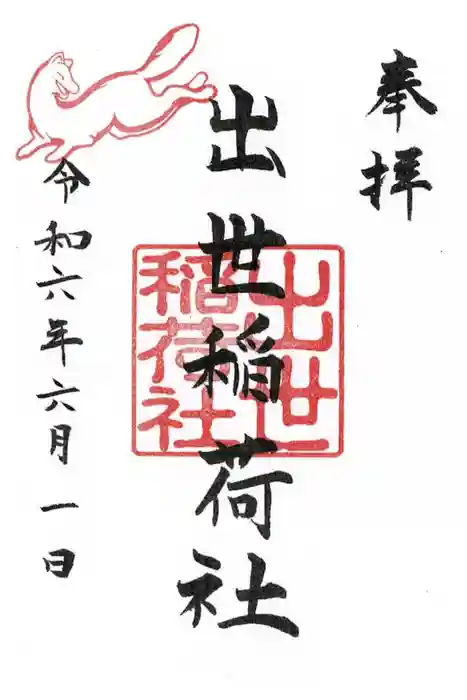 奉拝
出世稲荷社
出世
稲荷社
令和六年六月一日